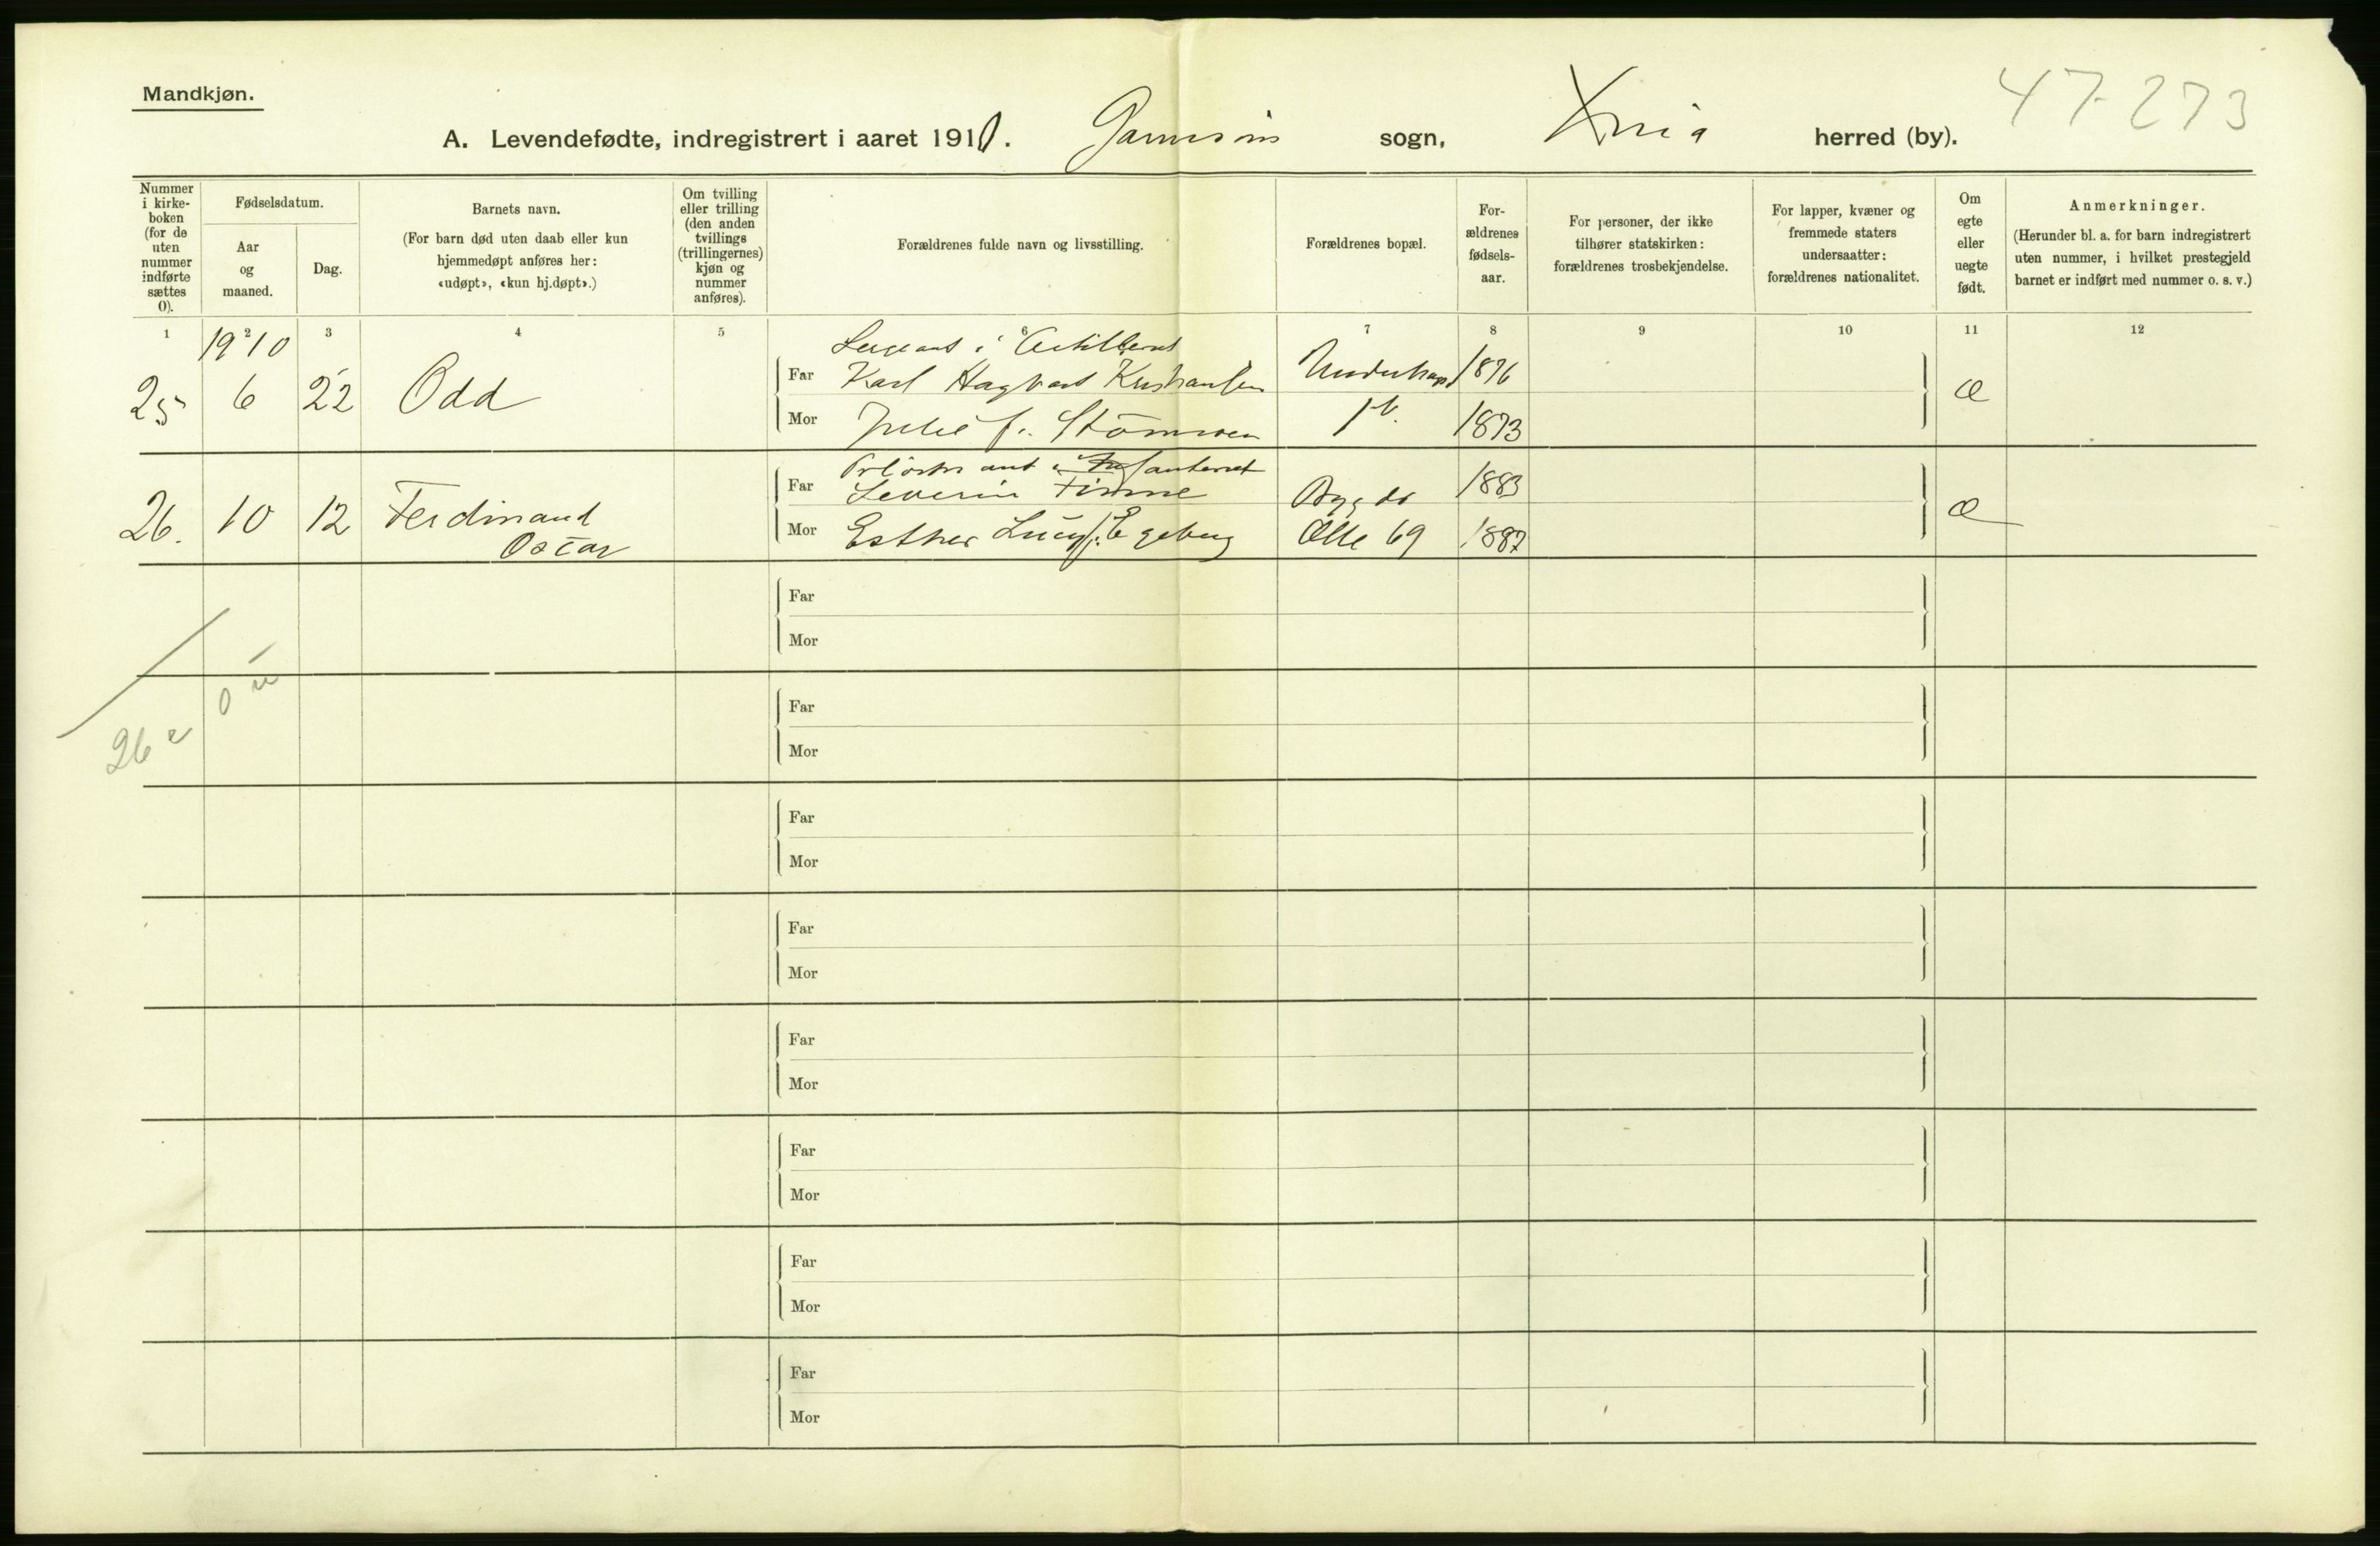 Mandkjøn.
47-273
A. Levendefødte, indregistrert i aaret 1910. Garnisons sogn, Xnia herred (by).
Nummer i kirke-boken (for de uten nummer indførte sættes 0).
Fødselsdatum.
Aar og maaned.
Dag.
Barnets navn.
(For barn død uten daab eller kun hjemmedøpt anføres her: «udøpt», «kun hj.døpt».)
Om tvilling eller trilling (den anden tvillings (trillingernes) kjøn og nummer anføres).
Forældrenes fulde navn og livsstilling.
Forældrenes bopæl.
For-ældrenes fødsels-aar.
For personer, der ikke tilhører statskirken: forældrenes trosbekjendelse.
For lapper, kvæner og fremmede staters undersaatter: forældrenes nationalitet.
Om egte eller uegte født.
Anmerkninger.
(Herunder bl. a. for barn indregistrert uten nummer, i hvilket prestegjeld barnet er indført med nummer o. s. v.)
1 2 3 4 5 6 7 8 9 10 11 12
1910
Sergeant i Artilleriet
25 6 22 Odd Far Karl Hagbart Kristiansen 1876 æ
Mor Julie f. 1873
i Infanteriet
26. 10 12 Ferdinand Far Severin Finne Bygdø 1883 æ
Oscar Mor Esther Lucy f. Egeberg Alle 69 1887
Far
Mor
0 u
26 e
Far
Mor
Far
Mor
Far
Mor
Far
Mor
Far
Mor
Far
Mor
Far
Mor